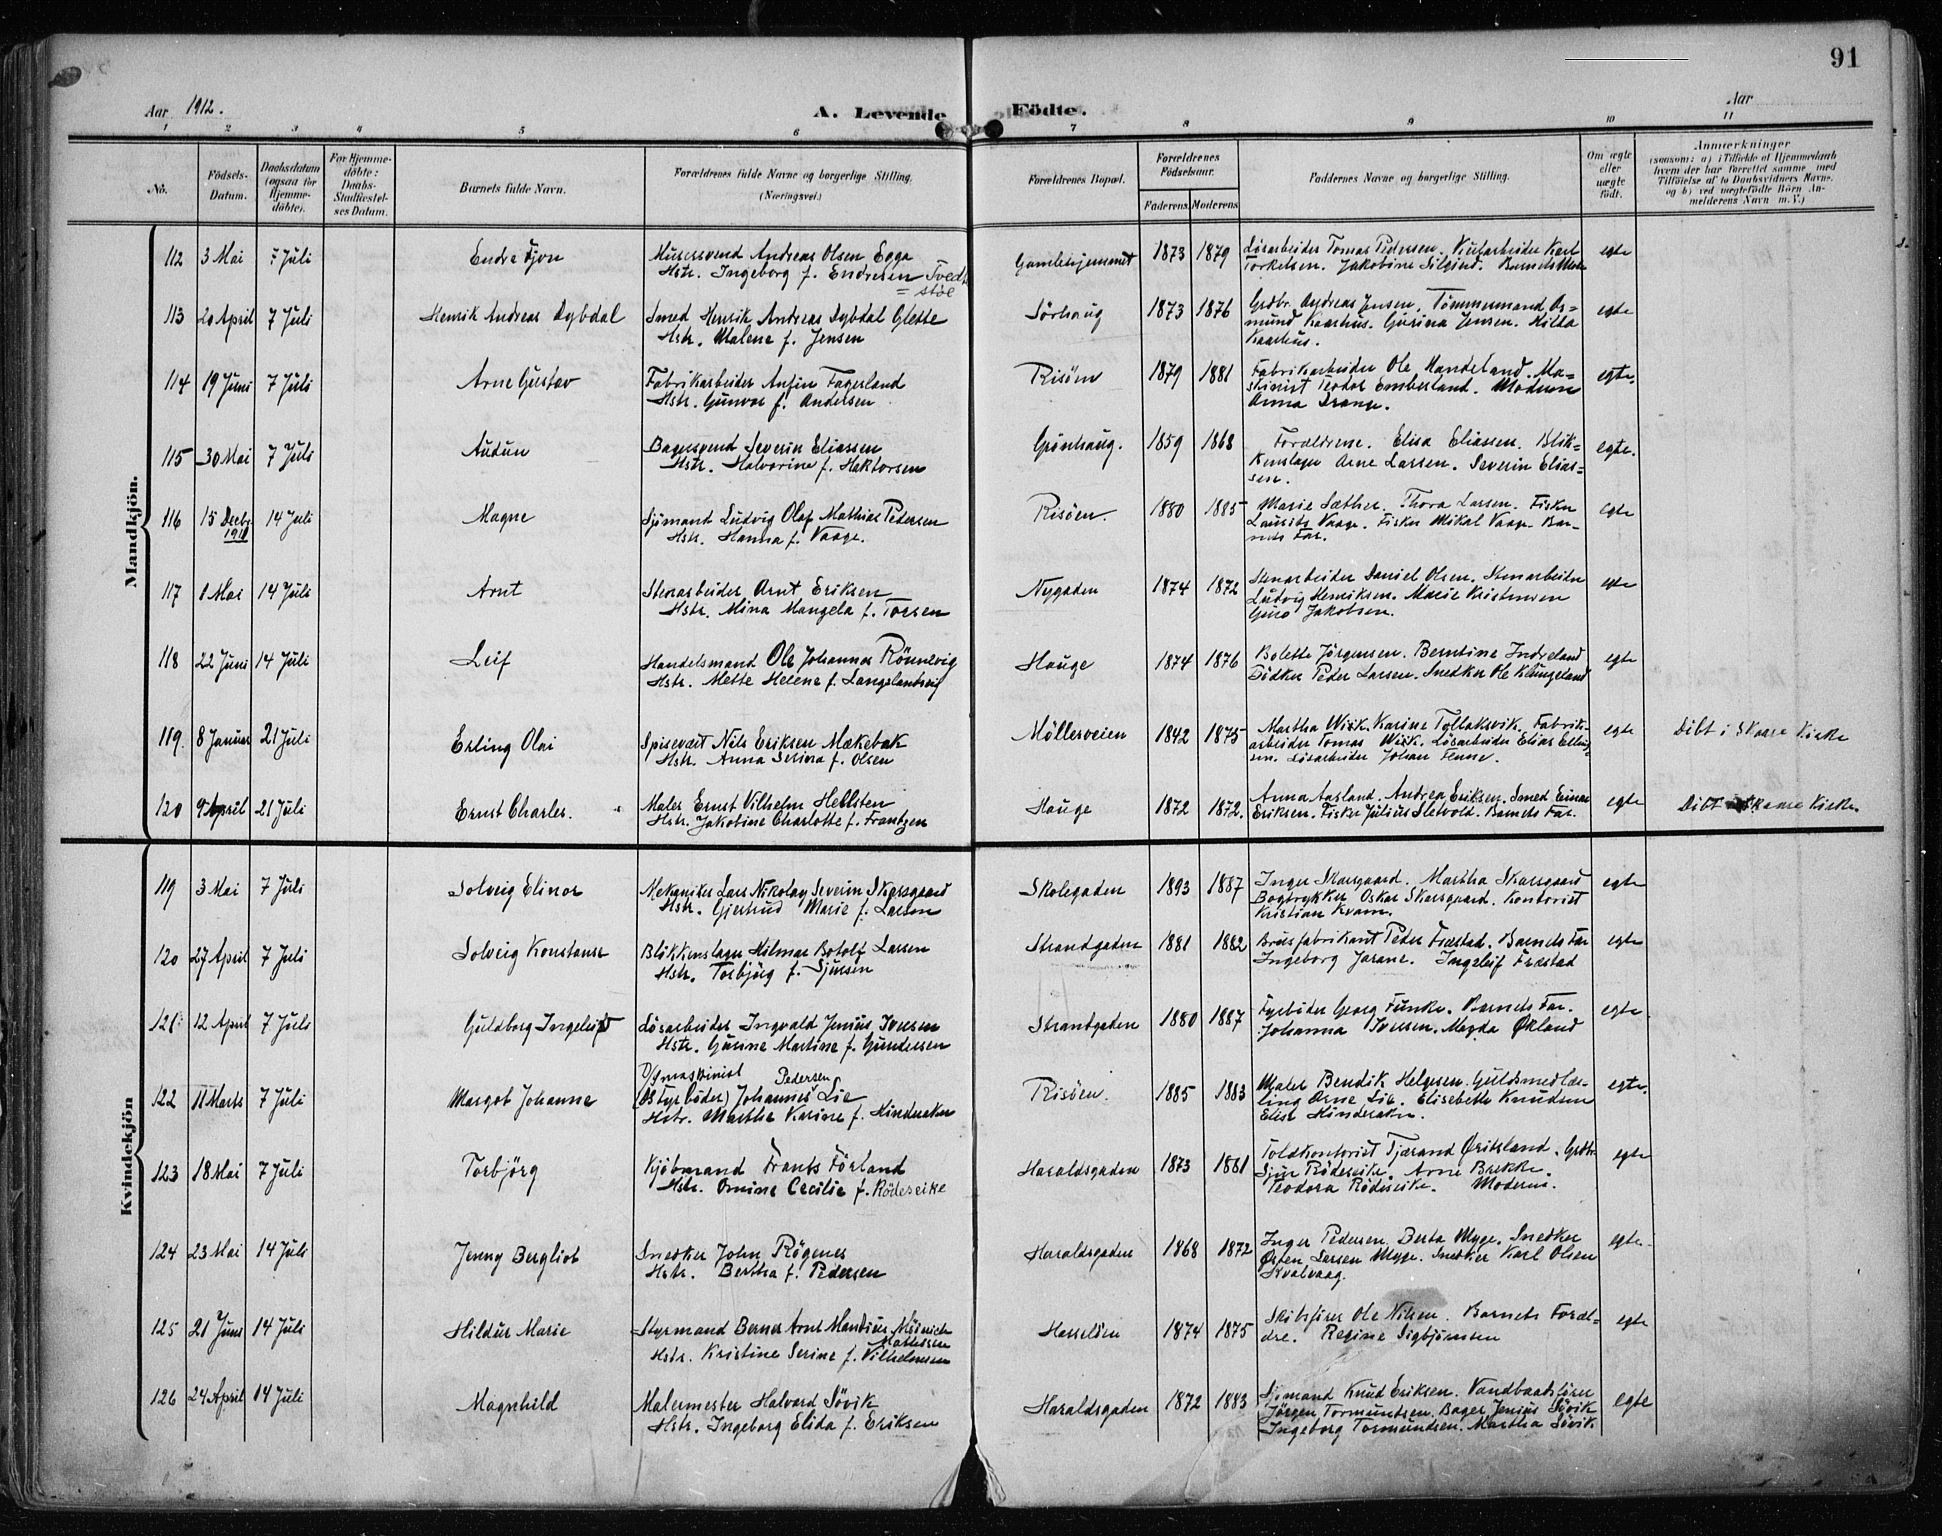 91
Aar 1912.
A. Levende Födte.
Aar
1 2 3 4 5 6 7 8 9 10 11
No.
Födsels-
Datum.
Daabsdatum
(ogsaa for
Hjemme-
döbte).
For Hjemme-
döbte:
Daabs-
Stadfæstel-
ses Datum.
Barnets fulde Navn.
Forældrenes fulde Navne og borgerlige Stilling.
(Næringsvei.)
Forældrenes Bopæl.
Forældrenes
Födselsaar.
Faderens. Moderens.
Faddernes Navne og borgerlige Stilling.
Om ægte
eller
uægte
födt.
Anmærkninger
(saasom: a) i Tilfælde af Hjemmedaab
hvem der har forrettet samme med
Tilföielse af to Daabsvidners Navne.
og b) ved uægtefödte Börn An-
melderens Navn m. V.)
Mandkjön.
112 3 Mai 7 Juli Endre Fjon Murersvend Andreas Olsen Egga
Hstr. Ingeborg f. Endresen Tvedt-
= stöe
Gamlehjemmet 1873 1879 Lösarbeider Tomas Pedersen. Karl
Torkelsen. Jakobine. Barnets Moder egte
113 20 April 7 Juli Henrik Andreas Dybdal Smed Henrik Andreas Dybdal Glette
Hstr. Malene f. Jensen
Sörhaug 1873 1876 Grdbr. Andreas Jensen. Tömmermand Os-
mund Kaarhus. Gurina Jensen. Hilda
Kaarhus. egte
114 19 Juni 7 Juli Arne Gustav Fabrikarbeider Anfin Fagerland
Hstr. Gunvor f. Andersen
Risöen 1879 1881 Fabrikarbeider Ole Mandeland. Ma-
skinist Teodor Emberland. Moderen
Anna Drange. egte.
115 30 Mai 7 Juli Audun Bagersvend Severin Eliassen
Hstr. Halvarine f. Hektorsen
Grönhaug. 1859 1868 Forældrene. Elisa Eliassen. Blik-
kenslager Arne Larsen. Severin Elias-
sen. egte.
116 15 Decbr.
1911 14 Juli Magne Sjömand Ludvig Olaf Mathias Pedersen
Hstr. Hanna f. Vaage.
Risöen. 1880 1885 Marie Sæther. Thora Larsen. Fisker
Laurits Vaage. Fisker Mikal Vaage. Bar-
nets Far. egte
117 1 Mai 14 Juli Arnt Stenarbeider Arnt Eriksen
Hstr. Mina Mangela f. Torsen
Nygaden 1874 1872 Stenarbeider Daniel Olsen. Stenarbeider
Ludvig Henriksen. Marie Kristensen
Guro Jakobsen. egte
118 22 Juni 14 Juli Leif Handelsmand Ole Johannes Rönnevig
Hstr. Mette Helene f. Langelandsvig
Hauge 1874 1876 Bolette Jörgensen. Berntine Indreland
Bödker Peder Larsen. Snedker Ole Klungeland egte
119. 8 Januar 21 Juli Erling Olai Spisevært Nils Eriksen Mækebak
Hstr. Anna Serina f. Olsen
Möllerveien 1842 1875 Martha Wisk. Karine Tollaksvik. Fabrik-
arbeider Tomas Wisk. Lösarbeider Elias Elling-
sen. Lösarbeider Johan Tenne. egte Döbt i Skaare Kirke
120 9 April 21 Juli Ernst Charles. Maler Ernst Vilhelm Hellsten
Hstr. Jakobine Charlotte f. Frantzen
Hauge 1872 1872. Anna Aasland. Andrea Eriksen. Smed Einar
Eriksen. Fisker Julius Sletvold. Barnets Far. egte Döbt i Skaare Kirke
Kvindekjön
119 3 Mai 7 Juli Solveig Elinor Mekaniker Lars Nikolay Severin Skarsgaard
Hstr. Gjertrud Marie f. Larsen
Skolegaden 1893 1887 Inger Skarsgaard. Martha Skarsgaard
Bogtrykker Oskar Skarsgaard. Kontorist
Kristian Kvam. egte
120 27 April 7 Juli Solveig Konstanse Blikkenslager Hilmar Botolf Larsen
Hstr. Torbjörg f. Sjursen
Strandgaden 1881 1882 Brusfabrikant Peder Fræstad. Barnets Far
Ingeborg Jarane. Ingeleif Fræstad egte
121 12 April 7 Juli Guldborg Ingeleif Lösarbeider Ingvald Jenius Iversen
Hstr. Gurine Martine f. Gundersen
Strandgaden 1880 1887 Fyrböder Georg Funke. Barnets Far.
Johanna Iversen. Magda Ökland egte.
122 11 Marts 7 Juli Margot Johanne D/smaskinist Pedersen
(Fyrböder) Johannes Lie
Hstr. Martha Karine f. Hinderaker
Risöen. 1885 1883 Maler Bendik Helgesen. Guldsmedlær-
ling Arne Lie. Elisebeth Knudsen
Elise Hinderaker. egte.
123 18 Mai 7 Juli Torbjörg Kjöbmand Frants Förland
Hstr. Omine Cecilie f. Rödseike
Haraldsgaden 1873 1881 Toldkontorist Tjærand Öritsland. Grdbr.
Sjur Rödseike. Arne Brekke.
Teodora Rödseike. Moderen. egte
124 23 Mai 14 Juli Jenny Bergliot Snedker John Rögenes
Hstr. Bertha f. Pedersen
Haraldsgaden 1868 1872 Inger Pedersen. Berta Myge. Snedker
Östen Larsen Myge. Snedker Karl Olsen
Kvalvaag. egte.
125 21 Juni 14 Juli Hildur Marie Styrmand Berner Arnt Mantius Meinich
Mathisen
Hstr. Kristine Serine f. Vilhelmsen
Hasselöen 1874 1875 Skibsförer Ole Nilsen. Barnets Foræl-
dre. Regine Sigbjörnsen egte
126 24 April 14 Juli Magnhild Malermester Halvard Sövik
Hstr. Ingeborg Elida f. Eriksen
Haraldsgaden 1872 1883 Sjömand Knud Eriksen. Vandbaadsförer
Jörgen Tormundsen. Bager Jenius Sövik
Ingeborg Tormundsen. Martha Sövik. egte